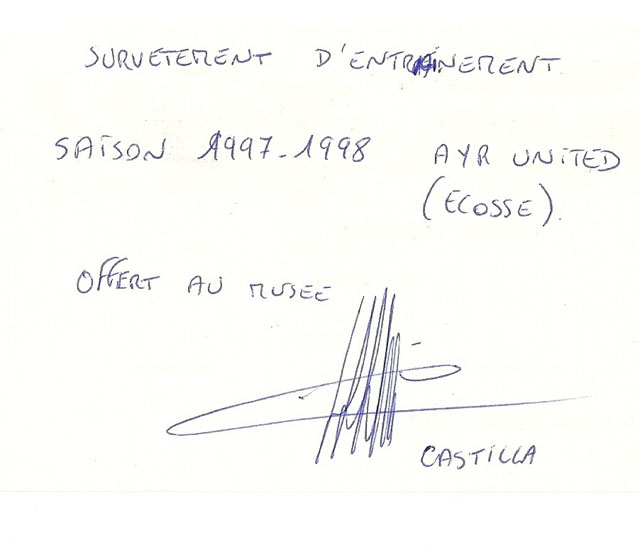 SURVETEMENT D'ENTRAINEMENT
SAISON 1997-1998 AYR UNITED
(ECOSSE).
OFFERT AU MUSEE
CASTILLA